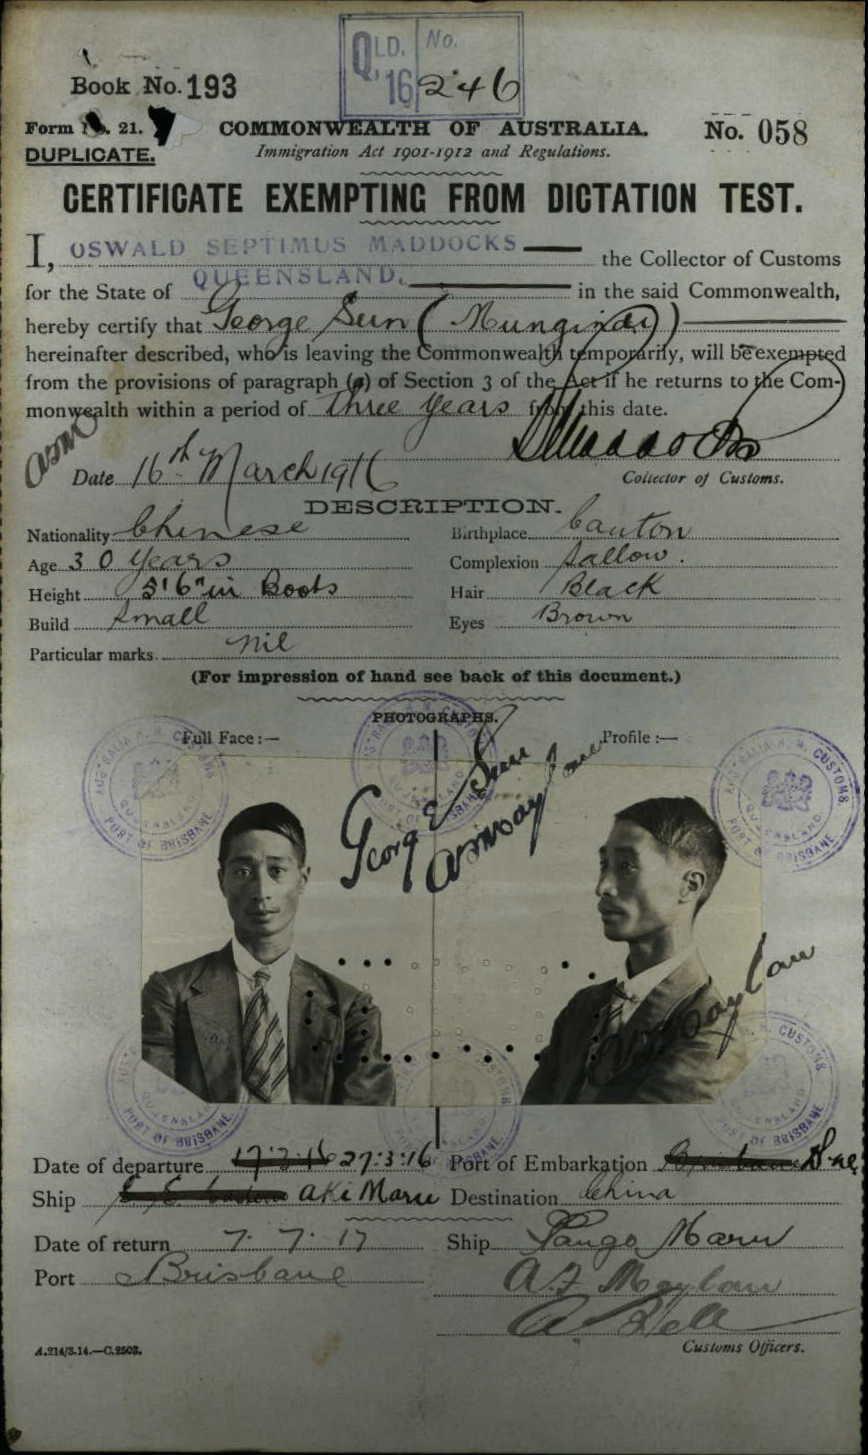 QLD. No.
'16 246
Book No. 193
Form No. 21. COMMONWEALTH OF AUSTRALIA. No. 058
DUPLICATE. Immigration Act 1901-1912 and Regulations.
CERTIFICATE EXEMPTING FROM DICTATION TEST.
I, OSWALD SEPTIMUS MADDOCKS the Collector of Customs
for the State of QUEENSLAND, in the said Commonwealth,
hereby certify that George Sun (Mungindi)
hereinafter described, who is leaving the Commonwealth temporarily, will be exempted
from the provisions of paragraph (a) of Section 3 of the Act if he returns to the Com-
monwealth within a period of three years from this date.
Date 16th March 1916 Collector of Customs.
DESCRIPTION.
Nationality Chinese Birthplace Canton
Age 30 years Complexion Sallow.
Height 5'6" in Boots Hair Black
Build Small Eyes Brown
Particular marks nil
(For impression of hand see back of this document.)
PHOTOGRAPHS.
Full Face :— Profile :—
George Sun
AUSTRALIA H. M. CUSTOMS. QUEENSLAND PORT OF BRISBANE
Date of departure 17.3.16 27.3.16 Port of Embarkation Brisbane
Ship Aki Maru Destination China
Date of return 7.7.17 Ship Tango Maru
Port Brisbane
A. Bell
A.214/3.14.—C.2503. Customs Officers.